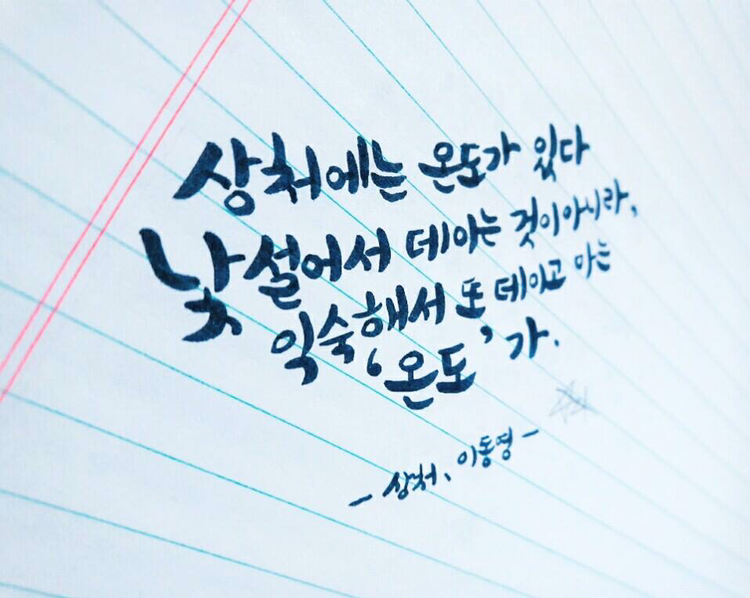 상처에는 온도가 있다
낯설어서 데이는 것이 아니라,
익숙해서 또 데이고 마는
'온도'가.
- 상처, 이동영 -